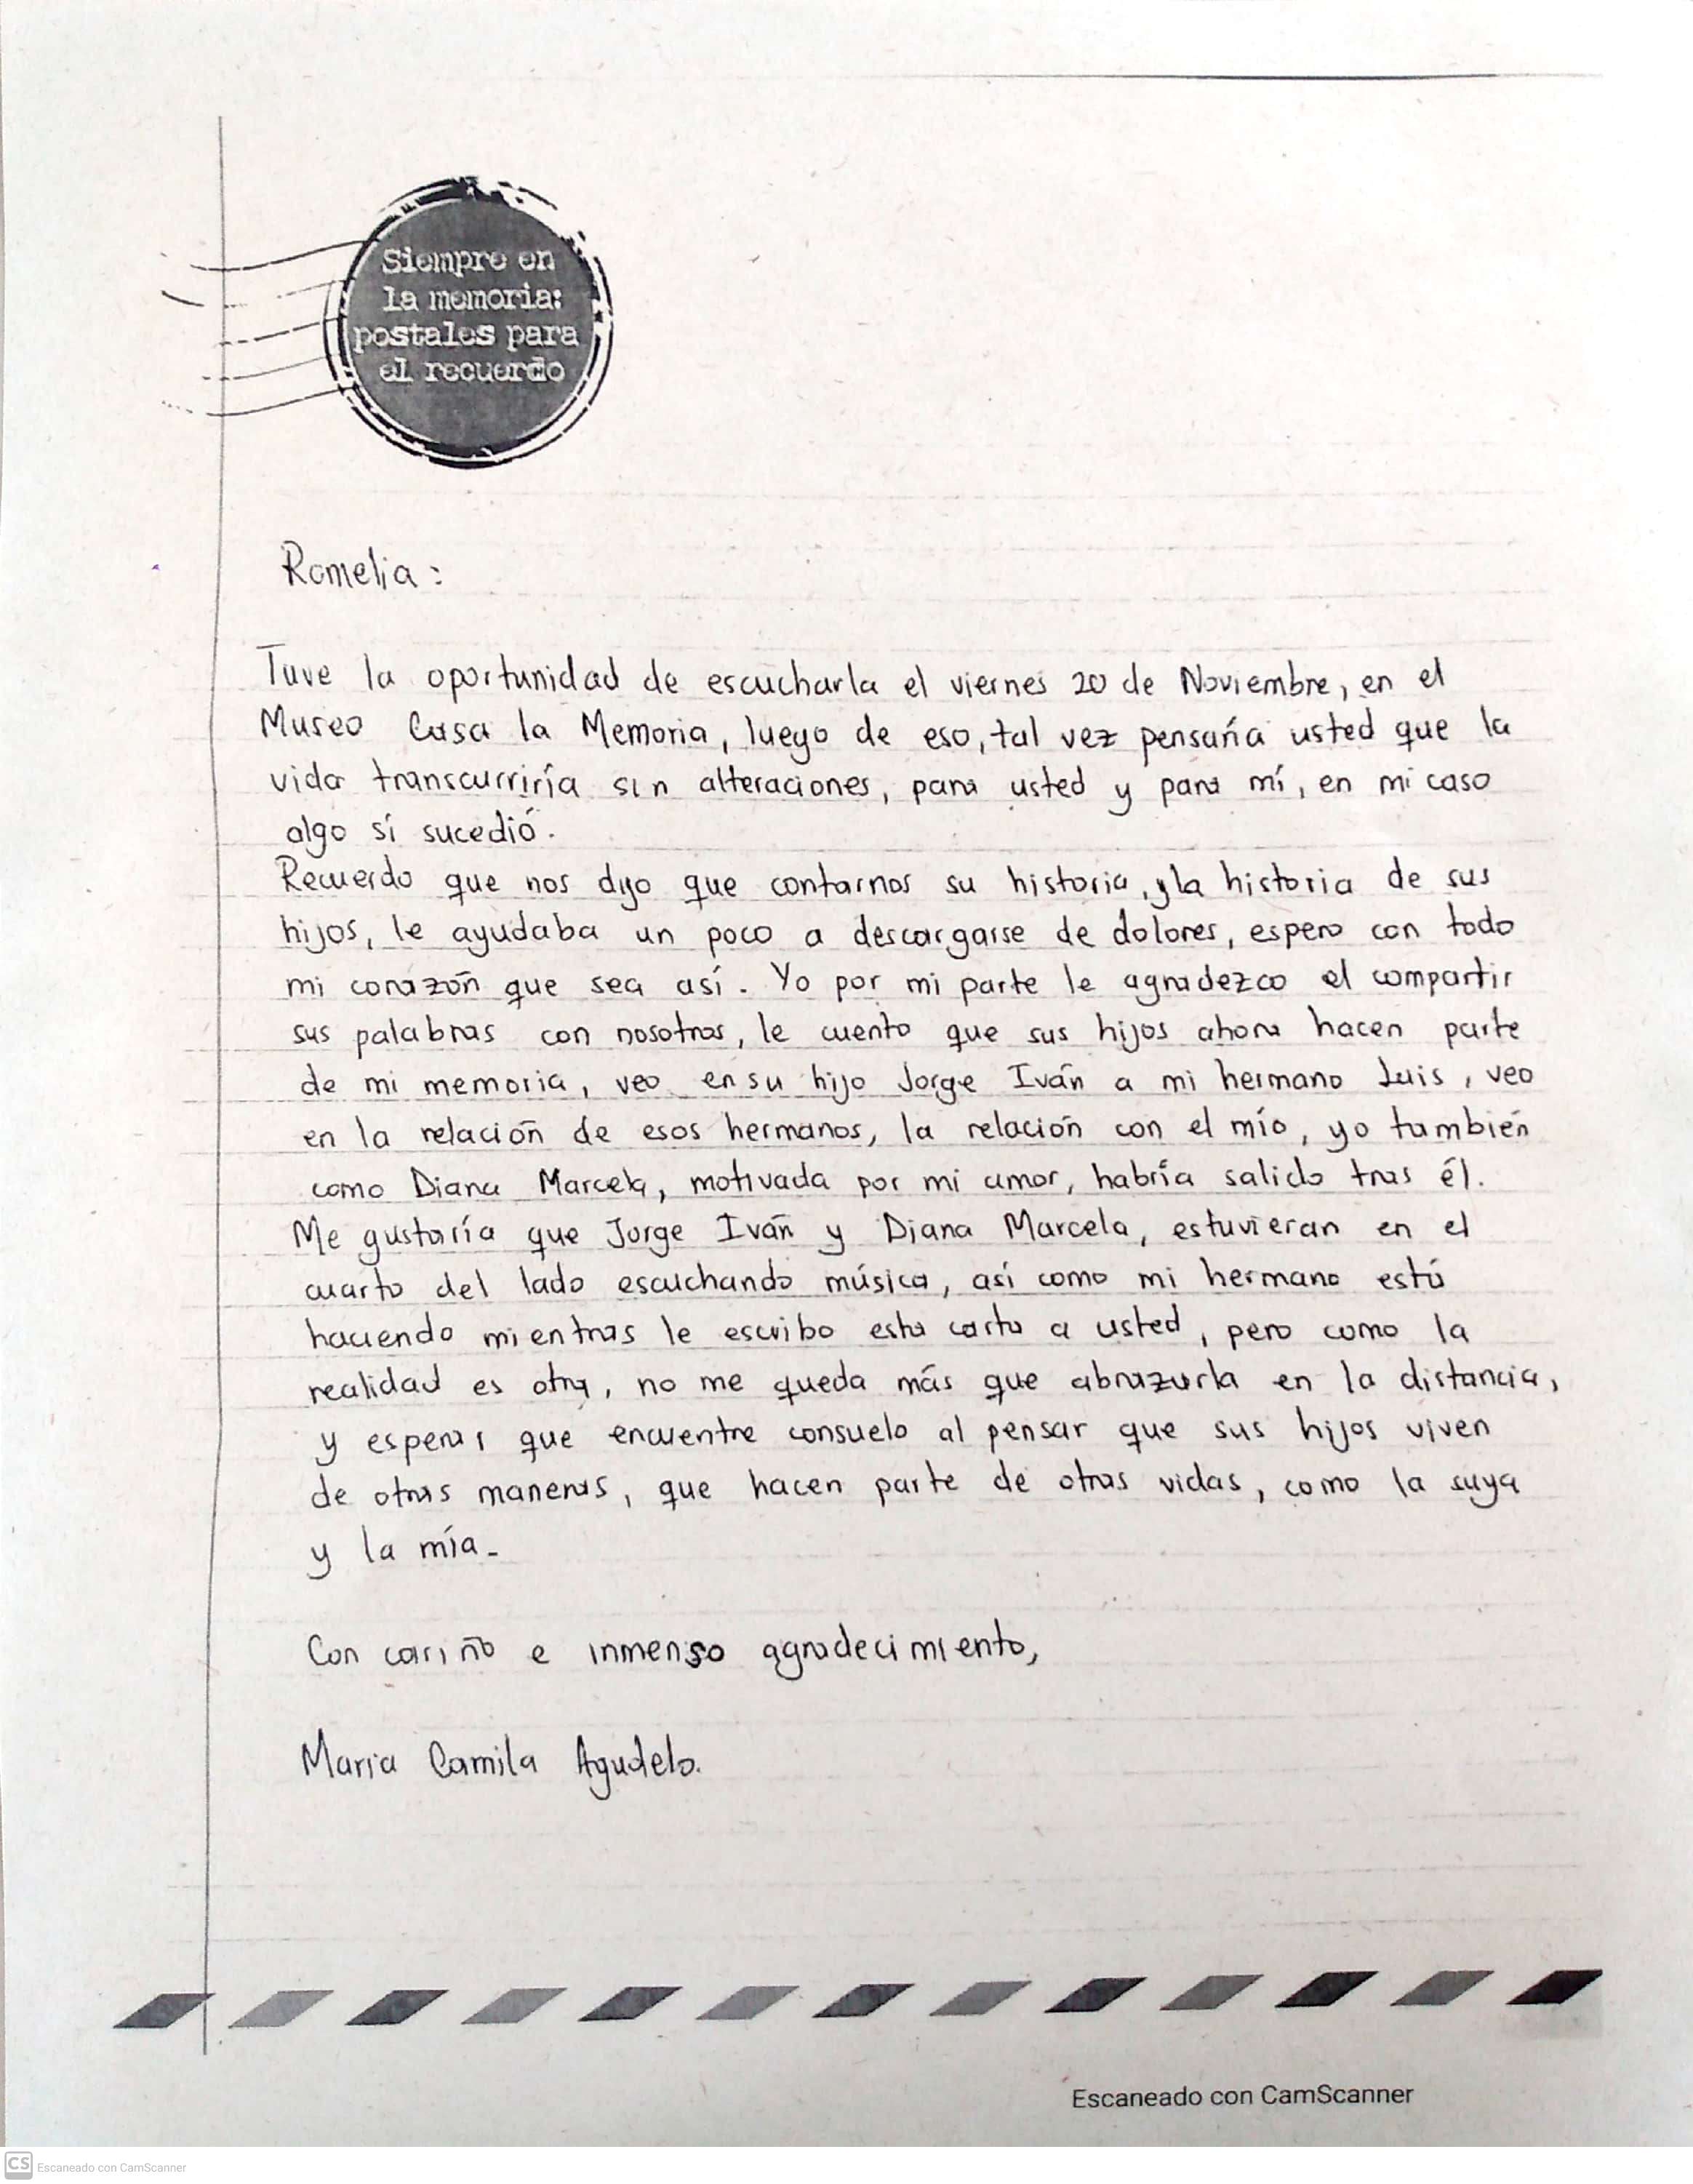 Siempre en
la memoria:
postales para
el recuerdo
Romelia:
Tuve la oportunidad de escucharla el viernes 20 de Noviembre, en el
Museo Casa la Memoria, luego de eso, tal vez pensaría usted que la
vida transcurriría sin alteraciones, para usted y para mí, en mi caso
algo sí sucedió.
Recuerdo que nos dijo que contarnos su historia, y la historia de sus
hijos, le ayudaba un poco a descargarse de dolores, espero con todo
mi corazón que sea así. Yo por mi parte le agradezco el compartir
sus palabras con nosotros, le cuento que sus hijos ahora hacen parte
de mi memoria, veo en su hijo Jorge Iván a mi hermano Luis, veo
en la relación de esos hermanos, la relación con el mío, yo también
como Diana Marcela, motivada por mi amor, habría salido tras él.
Me gustaría que Jorge Iván y Diana Marcela, estuvieran en el
cuarto del lado escuchando música, así como mi hermano está
haciendo mientras le escribo esta carta a usted, pero como la
realidad es otra, no me queda más que abrazarla en la distancia,
y esperar que encuentre consuelo al pensar que sus hijos viven
de otras maneras, que hacen parte de otras vidas, como la suya
y la mía.
Con cariño e inmenso agradecimiento,
Maria Camila Agudelo.
Escaneado con CamScanner
CS Escaneado con CamScanner